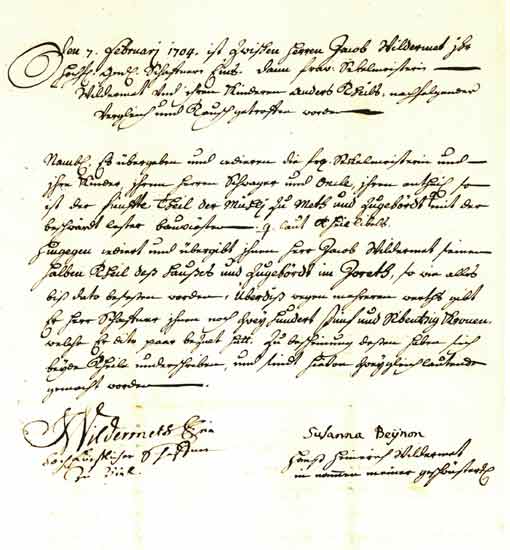 Den 7. Februarj 1704. ist Zwischen Herren Jacob Wildermet
Schaffnern Eins. dann fraw Sekelmeisterin
Wildermet und dero Kinderen anders Theils. nachfolgender
Vergleich und Tausch getroffen worden
Namb. Es übergeben und cedieren die frw. Sekelmeisterin und
ihre Kinder, ihrem Herren Schwager und Oncle, ihren antheil, so
ist der fünffte Theil der zu Mett und Zugehördt mit der
beschwärdt
Hingegen cediert und übergibt ihnen Herr Jacob Wildermet seinen
halben Theil deß Hauses und Zugehördt im Goreth, so wie alles
biß dato besessen worden, Uberdiß wegen mehreren werths gibt
Er Herr Schaffner ihnen noch Zwey hundert fünf und Sibentzig Kronen,
welche Er dito paar bezalt hatt. Zu bescheinung dessen haben sich
beyde Theile underschriben, und sindt hievon Zwey gleichlautende
gemacht worden
Wildermett
Hochfürstlicher
Zu Biel.
Susanna Beÿnon
Hanß Heinrich Wildermet
in nammen meiner geschwüsterd